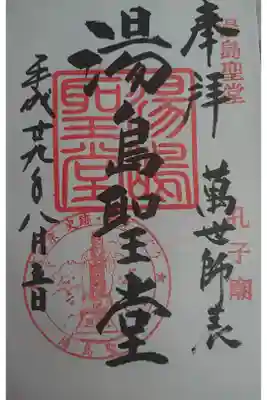 湯島聖堂
孔子廟
奉拝
萬世師表
湯島聖堂
湯島聖堂
平成廿九年八月五日